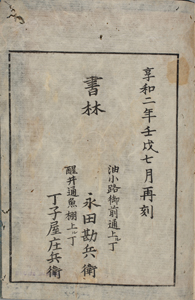 享和二年壬戌七月再刻
書林
油小路御前通上ル丁
永田勘兵衛
醒井通魚棚上ル丁
丁子屋庄兵衛